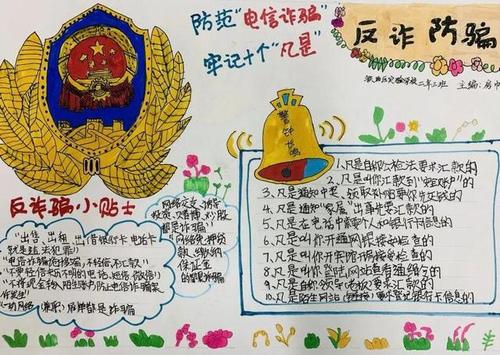 防范"电信诈骗"
牢记十个"凡是"
反诈防骗
二年三班
主编:
警钟长鸣
反诈骗小贴士
"出售、出租、出借银行卡、电话卡
就是违法犯罪!
"电话诈骗危害多,不轻信不汇款"
"不要轻信来历不明的电话、短信、微信!
网络交友,诱导
投资、赌博、炒股
都是诈骗!
网络免押贷
款、缴纳的
保证金
1.凡是自称公检法要求汇款的
2.凡是叫你汇款到"安全账户"的
3.凡是通知中奖、领取补贴要你先交钱的
4.凡是通知"家属"出事先要汇款的
5.凡是在电话中索要个人和银行卡信息的
6.凡是叫你开通网银接受检查的
7.凡是叫你开宾馆房接受检查的
8.凡是叫你登陆网站查看通缉令的
9.凡是自称领导(老板)要求汇款的
10.凡是陌生网站(链接)要求登记银行卡信息的